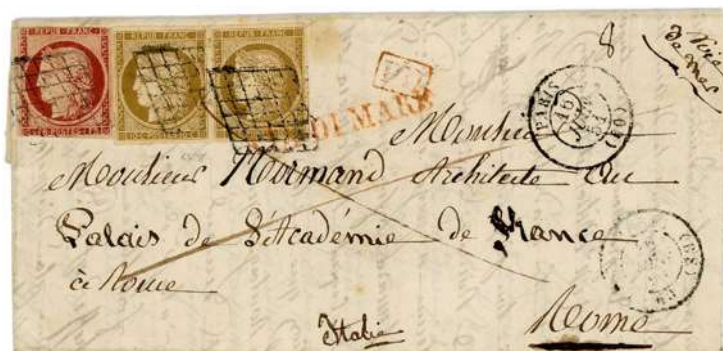 REPUB FRANC REPUB FRANC REPUB FRANC
8
Voie
de mer
DI MARE
PARIS (60)
Monsieur
Monsieur Normand Architecte au
Palais de L'Académie de France
à Rome
Italie
Rome